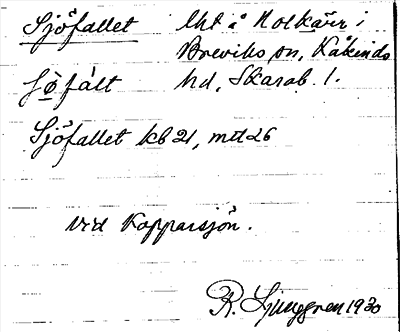 Sjöfallet lht å Holkärr i
Breviks sn, Kåkinds
hd, Skarab. l.
Sjöfallet kb 21, mtl 26
vid Kopparsjön.
R. Ljunggren 1930